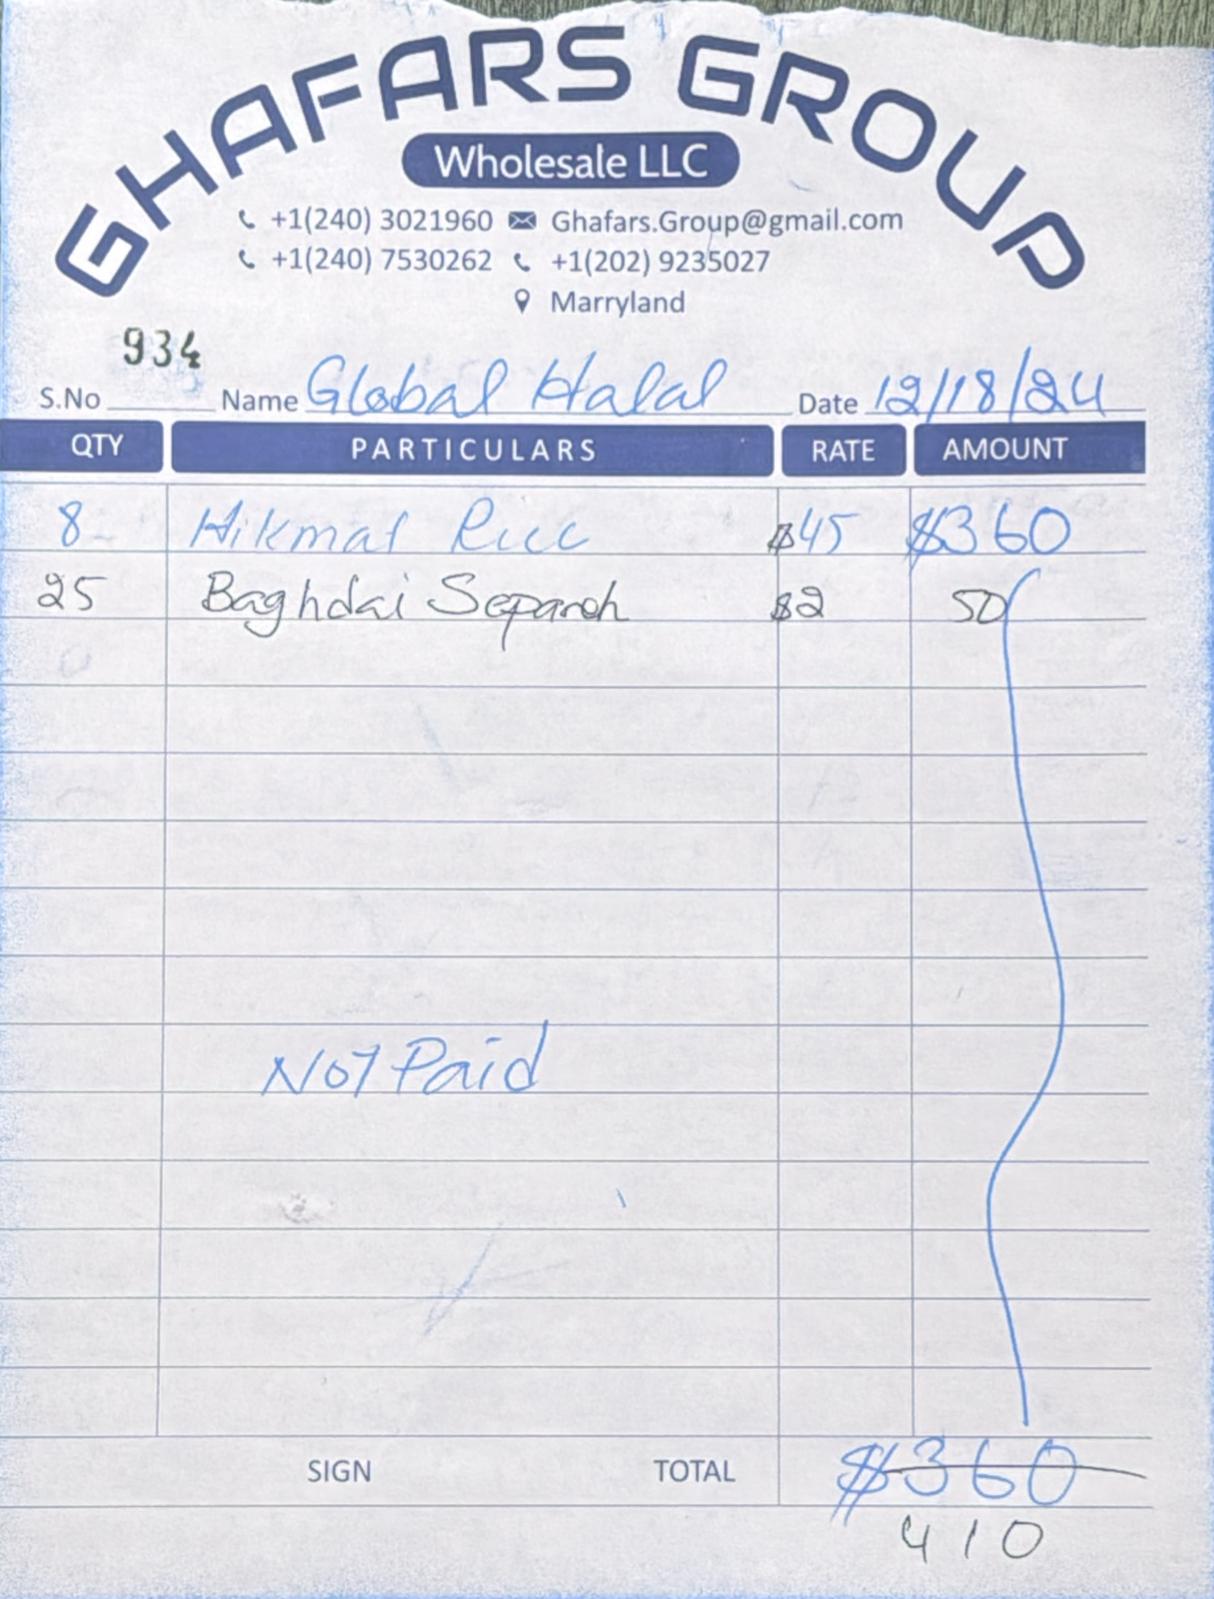 GHAFARS GROUP
Wholesale LLC
+1(240) 3021960 Ghafars.Group@gmail.com
+1(240) 7530262 +1(202) 9235027
Marryland
934
S.No Name Global Halal Date 12/18/24
QTY PARTICULARS RATE AMOUNT
8 Hikmat Rice $45 $360
25 Baghdai Separoh $2 50
Not Paid
SIGN TOTAL $360
410